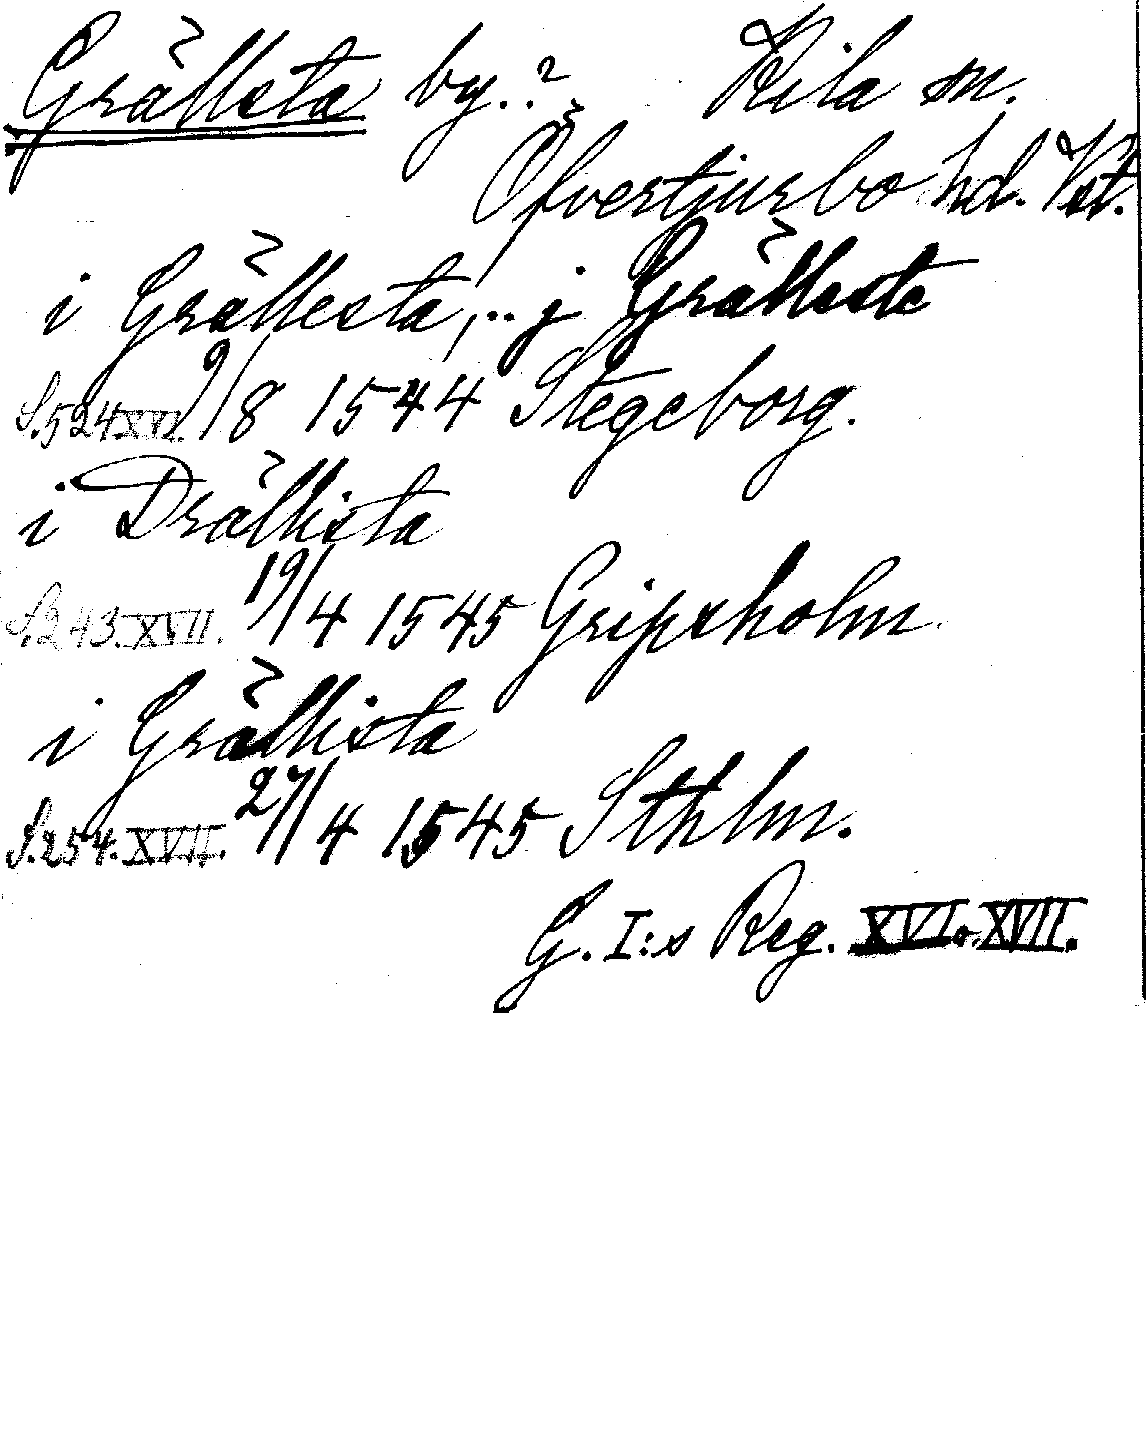 Grällsta by.? Kila sn.
Öfvertjurbo hd. Vstm.
i Grällesta, .. j Grälleste
S. 524 XVI. 9/8 1544 Stegeborg.
i Drällista
S. 243. XVII. 19/4 1545 Gripsholm.
i Grällista
S. 254. XVII. 27/4 1545 Sthlm.
G. I:s Reg. XVI o. XVII.